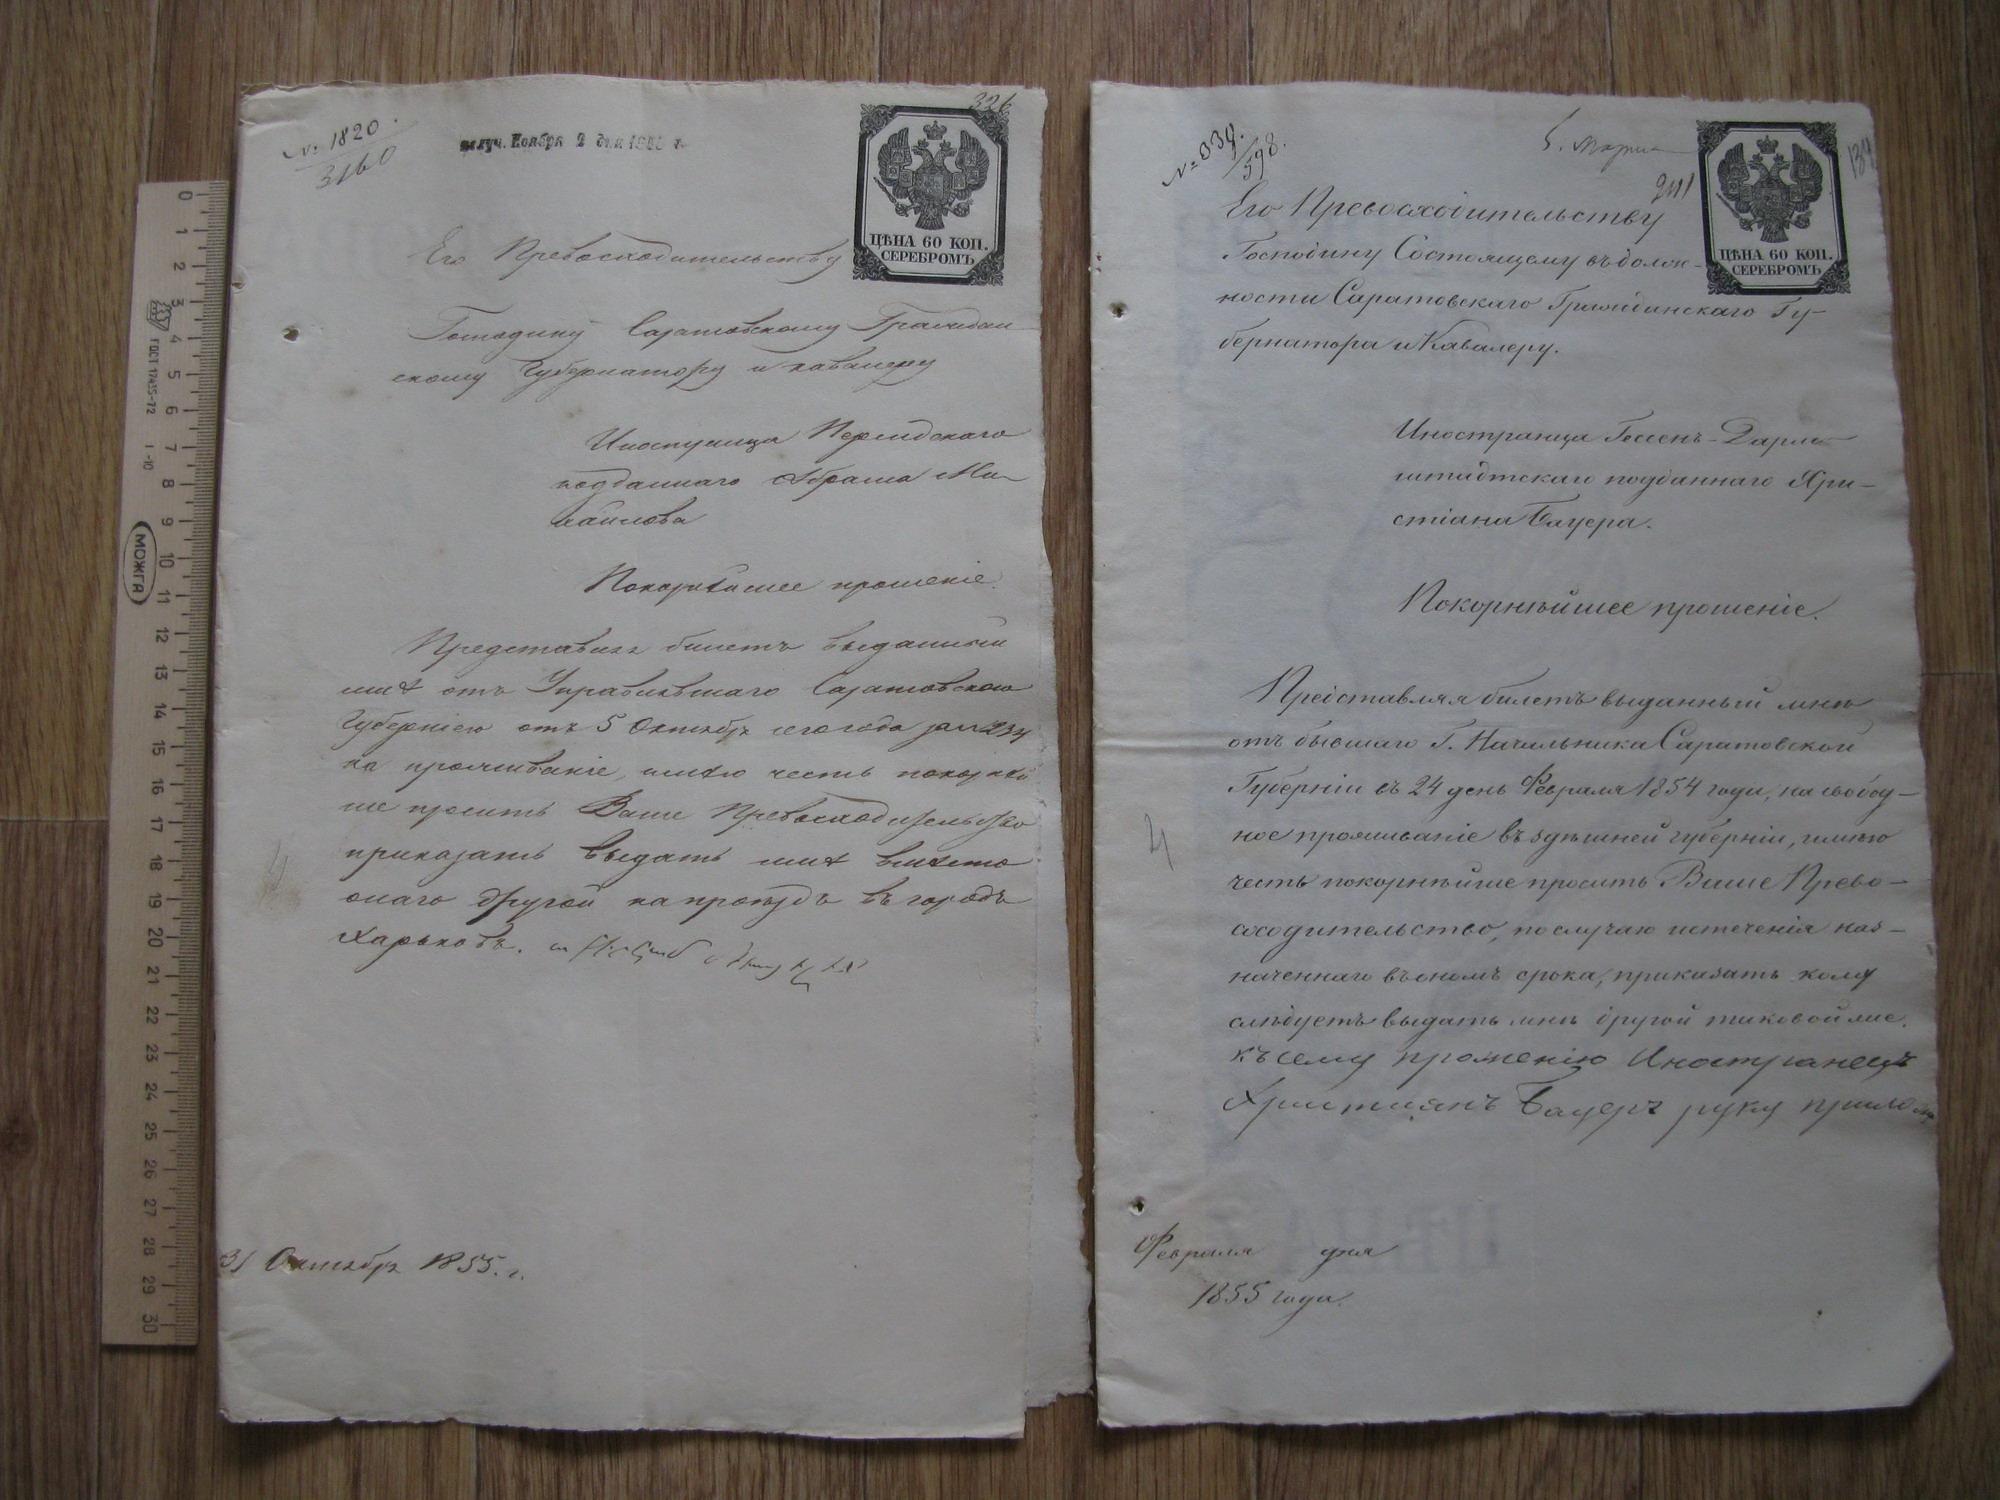 326
№ 1820.
3160
получ. Ноября 2 дня 1855 г.
ЦѢНА 60 КОП.
СЕРЕБРОМЪ
Его Превосходительству
Господину Саратовскому Граждан
скому Губернатору и кавалеру
Иностранца Персидскаго
подданнаго Абрама Ми-
хайлова
Покорнѣйшее прошеніе.
Представляя билетъ выданный
мнѣ отъ Управлявшаго Саратовскою
Губерніею отъ 5 Октября сего года за № 234
на проживаніе, имѣю честь покорнѣй
ше просить Ваше Превосходительство
приказать выдать мнѣ вмѣсто
онаго другой на проѣздъ въ городъ
Харьковъ.
31 Октября 1855. г.
0 1 2 3 4 5 6 7 8 9 10 11 12 13 14 15 16 17 18 19 20 21 22 23 24 25 26 27 28 29 30
ГОСТ 17435-72
МОЖГА
№ 339.
598.
5. Марта
ЦѢНА 60 КОП.
СЕРЕБРОМЪ
Его Превосходительству
Господину Состоящему въ долж-
ности Саратовскаго Гражданскаго Гу-
бернатора и Кавалеру.
Иностранца Гессенъ-Дарм-
штадтскаго подданнаго Хри-
стіана Бауера.
Покорнѣйшее прошеніе.
Представляя билетъ выданный мнѣ
отъ бывшаго Г. Начальника Саратовской
Губерніи въ 24 день Февраля 1854 года, на свобод-
ное проживаніе въ здѣшней губерніи, имѣю
честь покорнѣйше просить Ваше Прево-
сходительство, по случаю истеченія наз-
наченнаго въ ономъ срока, приказать кому
слѣдуетъ выдать мнѣ другой таковой же.
къ сему прошенію Иностранецъ
Християнъ Бауеръ руку приложи
Февраля дня
1855 года.